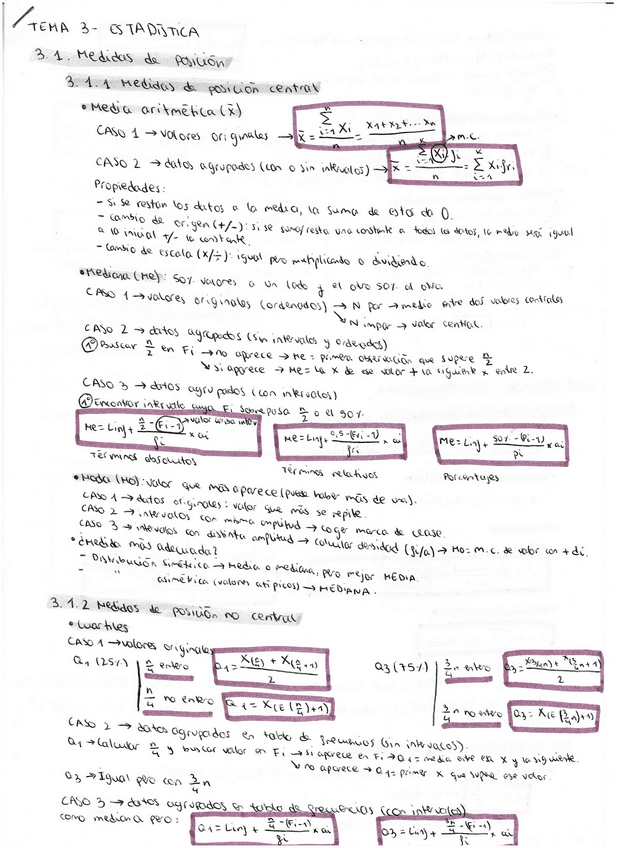 TEMA 3- ESTADÍSTICA
3.1. Medidas de posición
3.1.1 Medidas de posición central
• Media aritmética (x̄)
CASO 1 → valores originales → x̄ = Σ(i=1, n) Xi / n = x1+x2+...xn / n
→ m.c.
CASO 2 → datos agrupados (con o sin intervalos) → x̄ = Σ(i=1, k) Xi fi / n = Σ(i=1, k) Xi fri
Propiedades:
- Si se restan los datos a la media, la suma de estos da 0.
- cambio de origen (+/-): si se suma/resta una constante a todos los datos, la media será igual
a la inicial +/- la constante.
- cambio de escala (x/÷): igual pero multiplicando o dividiendo.
• Mediana (Me): 50% valores a un lado y el otro 50% al otro.
CASO 1 → valores originales (ordenados) → N par → media entre dos valores centrales
↘ N impar → valor central.
CASO 2 → datos agrupados (sin intervalos y ordenados)
1º Buscar n/2 en Fi → no aparece → Me = primera observación que supere n/2
↘ si aparece → Me = la x de ese valor + la siguiente x entre 2.
CASO 3 → datos agrupados (con intervalos)
1º Encontrar intervalo cuya Fi sobrepasa n/2 o el 50%.
Me = Linf + n/2 - (Fi-1) / fi × ai
Me = Linf + 0,5 - (Fri-1) / fri × ai
Me = Linf + 50% - (Pi-1) / pi × ai
Términos absolutos
Términos relativos
Porcentajes
• Moda (Mo): valor que más aparece (puede haber más de una).
CASO 1 → datos originales: valor que más se repite.
CASO 2 → intervalos con misma amplitud → coger marca de clase.
CASO 3 → intervalos con distinta amplitud → calcular densidad (fi/a) → Mo = m.c. de valor con + di.
• ¿Medida más adecuada?
- Distribución simétrica → Media o mediana, pero mejor MEDIA.
- " asimétrica (valores atípicos) → MEDIANA.
3.1.2 Medidas de posición no central
• Cuartiles
CASO 1 → valores originales
Q1 (25%) n/4 entero Q1 = X(n/4) + X(n/4+1) / 2
n/4 no entero Q1 = X(E(n/4)+1)
Q3 (75%) 3/4 n entero Q3 = X(3/4n) + X(3/4n+1) / 2
3/4 n no entero Q3 = X(E(3/4n)+1)
CASO 2 → datos agrupados en tabla de frecuencias (sin intervalos).
Q1 → Calcular n/4 y buscar valor en Fi → si aparece en Fi → Q1 = media entre esa X y la siguiente.
↘ no aparece → Q1 = primer X que supere ese valor.
Q3 → Igual pero con 3/4 n
CASO 3 → datos agrupados en tabla de frecuencias (con intervalos)
como mediana pero: Q1 = Linf + n/4 - (Fi-1) / fi × ai Q3 = Linf + 3n/4 - (Fi-1) / fi × ai